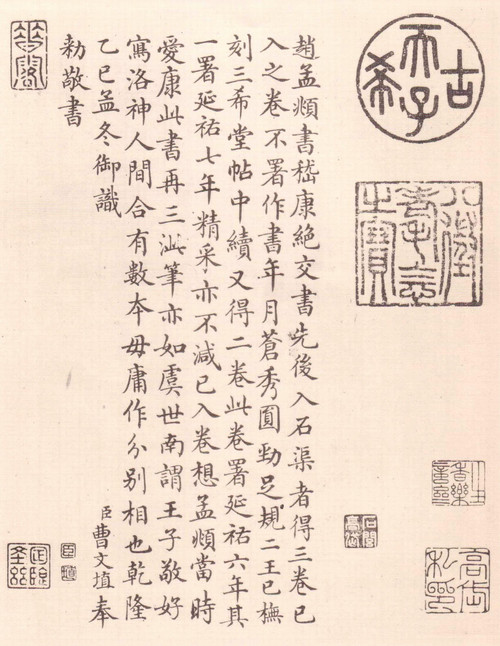 古希天子
八徵耄念之寶
趙孟頫書嵇康絶交書先後入石渠者得三卷已
入之卷不署作書年月蒼秀圓勁足規二王已橅
刻三希堂帖中續又得二卷此卷署延祐六年其
一署延祐七年精采亦不減已入卷想孟頫當時
愛康此書再三泚筆亦如虞世南謂王子敬好
寫洛神人間合有數本毋庸作分別相也乾隆
乙巳孟冬御識 臣曹文埴奉
勅敬書
臣埴